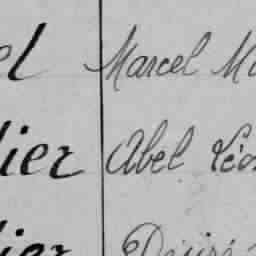 el Marcel
lier Abel
lier Désiré